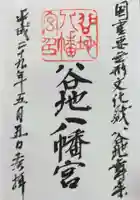 国重要無形文化財 谷地舞楽
谷地八幡宮
谷地
八幡
宮印
平成二九年五月五日参拝